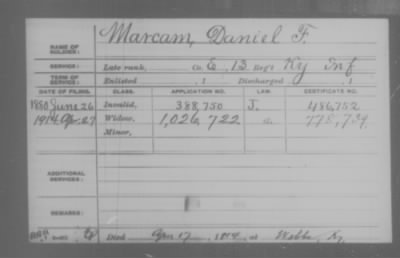 Marcam, Daniel F.
NAME OF SOLDIER:
SERVICE: Late rank, Co. E, 13 Reg't Ky Inf
TERM OF SERVICE: Enlisted , 1 Discharged , 1
DATE OF FILING. CLASS. APPLICATION NO. LAW. CERTIFICATE NO.
1880 June 26 Invalid, 388,750 J. 486,752
1914 Ap. 27 Widow, 1,026,722 778,739
Minor,
ADDITIONAL SERVICES:
REMARKS:
Died Apr. 17, 1914, at Webbs, Ky.